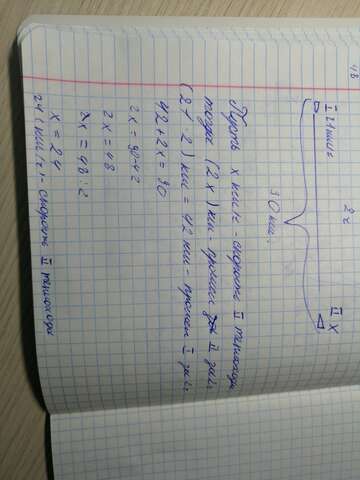 I 21 км/ч 2ч II x
90 км.
Пусть x км/ч - скорость II теплохода
тогда (2x) км - прошёл II за 2ч
(21·2) км = 42 км - прошёл I за 2ч
42+2x=90
2x=90-42
2x=48
2x=48:2
x=24
24 (км/ч) - скорость II теплохода